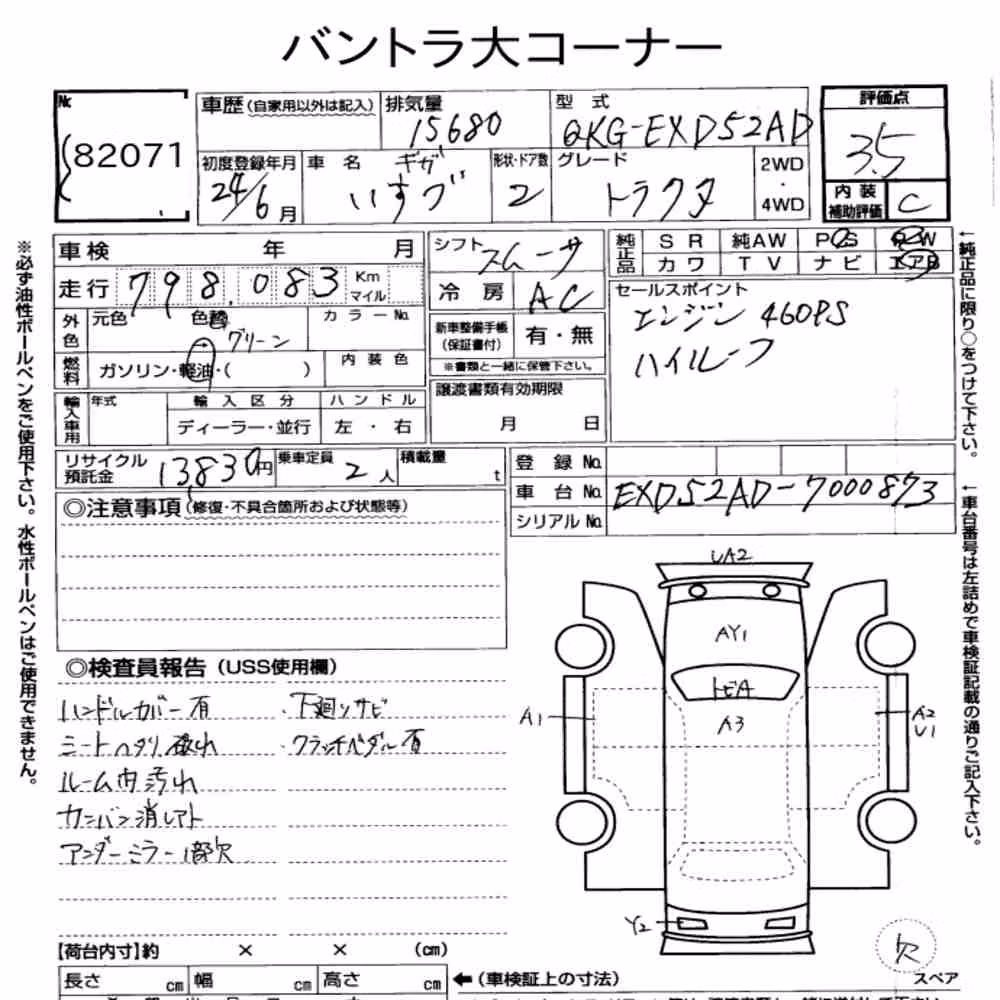 バントラ大コーナー
№ 82071
車歴(自家用以外は記入) 排気量 15680 型式 QKG-EXD52AD 評価点 3.5
初度登録年月 24/6月 車名 ギガ いすゞ 形状・ドア数 2 グレード トラクタ 2WD・4WD 内装補助評価 C
車検 年 月 シフト スムーサ 純正品 SR 純AW PS PW
カワ TV ナビ エアB
走行 798,083 Km マイル 冷房 AC セールスポイント
エンジン 460PS
ハイルーフ
外色 元色 色替 グリーン カラーNo. 新車整備手帳(保証書付) 有・無
燃料 ガソリン・軽油・( ) 内装色 ※書類と一緒に保管下さい。
輸入車用 年式 輸入区分 ハンドル 譲渡書類有効期限
ディーラー・並行 左・右 月 日
リサイクル預託金 13830円 乗車定員 2人 積載量 t 登録No.
車台No. EXD52AD-7000873
シリアルNo.
◎注意事項(修復・不具合箇所および状態等)
◎検査員報告(USS使用欄)
ハンドルカバー有 下廻りサビ
シートヘタリ破れ クラッチペダル有
ルーム内汚れ
カンバン消しアト
アンダーミラー1部欠
UA2
AY1
トビA
A3
A1
A2
U1
Y2
欠
スペア
【荷台内寸】約 × × (cm)
長さ cm 幅 cm 高さ cm ←(車検証上の寸法)
※必ず油性ボールペンをご使用下さい。水性ボールペンはご使用できません。
←純正品に限り○をつけて下さい。
←車台番号は左詰めで車検証記載の通りご記入下さい。